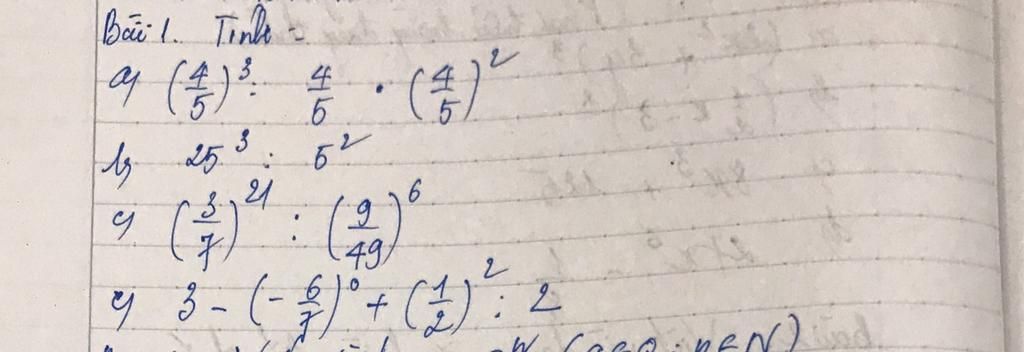 Bài 1. Tính:
a) (4/5)^3 : 4/5 . (4/5)^2
b) 25^3 : 5^2
c) (3/7)^21 : (9/49)^6
e) 3 - (-6/7)^0 + (1/2)^2 : 2